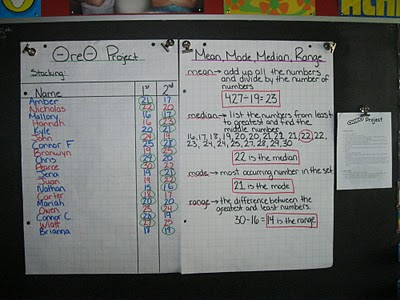 OreO Project
Stacking:
Name 1st 2nd
Amber 21 17
Nicholas 22 20
Mallory 16 17
Hannah 16 23
Kyle 20 21
John 24 19
Connor F. 25 28
Bronwyn 19 25
Chris 29 20
Pierce 30 22
Jena 19 21
Juan 19 22
Nathan 15 16
Carter 18 17
Mariah 20 20
Owen 23 24
Connor C. 26 19
Wyatt 27 25
Brianna 18 19
Mean, Mode, Median, Range
mean→ add up all the numbers
and divide by the number of
numbers
427÷19=23
median→ list the numbers from least
to greatest and find the
middle number.
16, 17, 18, 19, 20, 20, 21, 21, 21, 22, 22,
23, 24, 24, 25, 27, 28, 29, 30
22 is the median
mode→ most occurring number in the set
21 is the mode
range→ the difference between the
greatest and least numbers.
30-16=14 is the range
Project